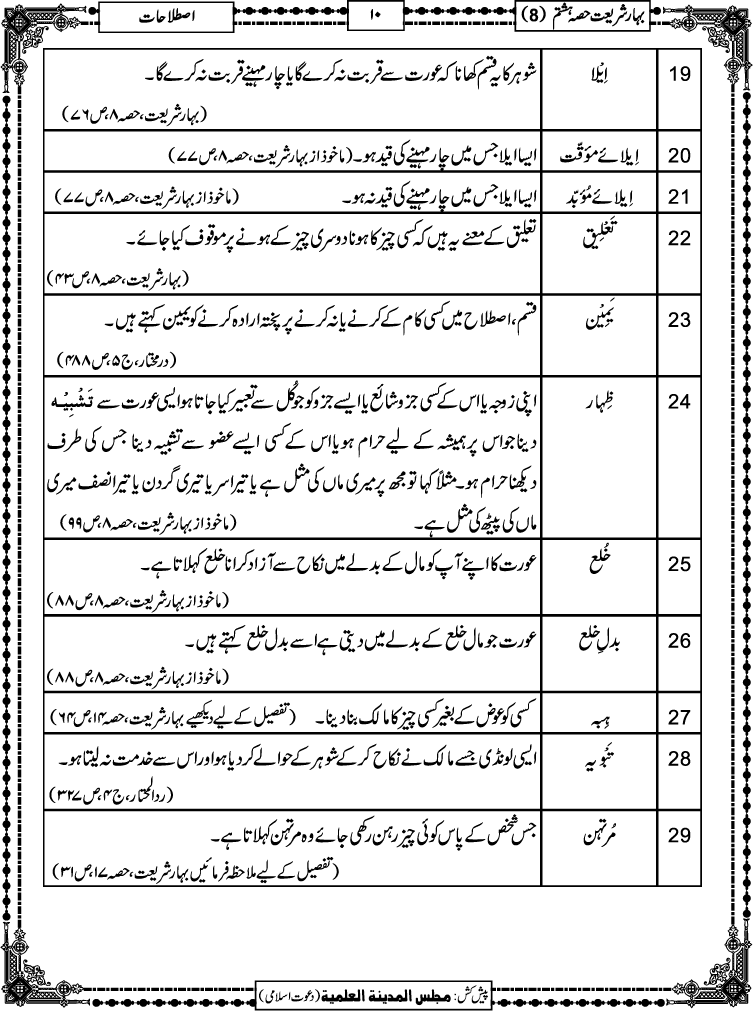 بہار شریعت حصہ ہشتم (8)
۱۰
اصطلاحات
19 اِیْلا شوہر کا یہ قسم کھانا کہ عورت سے قربت نہ کرے گا یا چار مہینے قربت نہ کرے گا۔
(بہار شریعت، حصہ ۸، ص ۷۶)
20 اِیلائے مؤقّت ایسا ایلا جس میں چار مہینے کی قید ہو۔ (ماخوذ از بہار شریعت، حصہ ۸، ص ۷۷)
21 اِیلائے مُؤبّد ایسا ایلا جس میں چار مہینے کی قید نہ ہو۔ (ماخوذ از بہار شریعت، حصہ ۸، ص ۷۷)
22 تَعْلِیق تعلیق کے معنے یہ ہیں کہ کسی چیز کا ہونا دوسری چیز کے ہونے پر موقوف کیا جائے۔
(بہار شریعت، حصہ ۸، ص ۴۳)
23 یَمِیْن قسم، اصطلاح میں کسی کام کے کرنے یا نہ کرنے پر پختہ ارادہ کرنے کو یمین کہتے ہیں۔
(درمختار، ج ۵، ص ۴۸۸)
24 ظِہار اپنی زوجہ یا اس کے کسی جزو شائع یا ایسے جزو کو جو کُل سے تعبیر کیا جاتا ہو ایسی عورت سے تَشْبِیْہ
دینا جو اس پر ہمیشہ کے لیے حرام ہو یا اس کے کسی ایسے عضو سے تشبیہ دینا جس کی طرف
دیکھنا حرام ہو۔ مثلاً کہا تو مجھ پر میری ماں کی مثل ہے یا تیرا سر یا تیری گردن یا تیرا نصف میری
ماں کی پیٹھ کی مثل ہے۔ (ماخوذ از بہار شریعت، حصہ ۸، ص ۹۹)
25 خُلع عورت کا اپنے آپ کو مال کے بدلے میں نکاح سے آزاد کرانا خلع کہلاتا ہے۔
(ماخوذ از بہار شریعت، حصہ ۸، ص ۸۸)
26 بدلِ خلع عورت جو مال خلع کے بدلے میں دیتی ہے اسے بدل خلع کہتے ہیں۔
(ماخوذ از بہار شریعت، حصہ ۸، ص ۸۸)
27 ہِبہ کسی کو عوض کے بغیر کسی چیز کا مالک بنا دینا۔ (تفصیل کے لیے دیکھیے بہار شریعت، حصہ ۱۴، ص ۶۴)
28 تَبْوِیہ ایسی لونڈی جسے مالک نے نکاح کر کے شوہر کے حوالے کر دیا ہو اور اس سے خدمت نہ لیتا ہو۔
(ردالمحتار، ج ۴، ص ۳۲۷)
29 مُرتہن جس شخص کے پاس کوئی چیز رہن رکھی جائے وہ مرتہن کہلاتا ہے۔
(تفصیل کے لیے ملاحظہ فرمائیں بہار شریعت، حصہ ۱۷، ص ۳۱)
پیش کش: مجلس المدینة العلمیة (دعوت اسلامی)